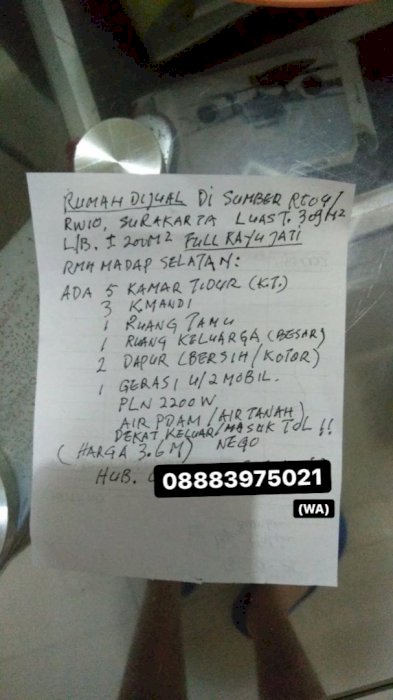 RUMAH DIJUAL DI SUMBER RT04/
RW10, SURAKARTA LUAS T. 309 M2
L/B. ± 200M2 FULL KAYU JATI
RMH MADAP SELATAN:
ADA 5 KAMAR TIDUR (KT.)
3 KMANDI
1 RUANG TAMU
1 RUANG KELUARGA (BESAR)
2 DAPUR (BERSIH/KOTOR)
1 GERASI U/2 MOBIL.
PLN 2200W
AIR PDAM/AIR TANAH)
DEKAT KELUAR/MASUK TOL !!
(HARGA 3.6 M) NEGO
HUB.
08883975021
(WA)